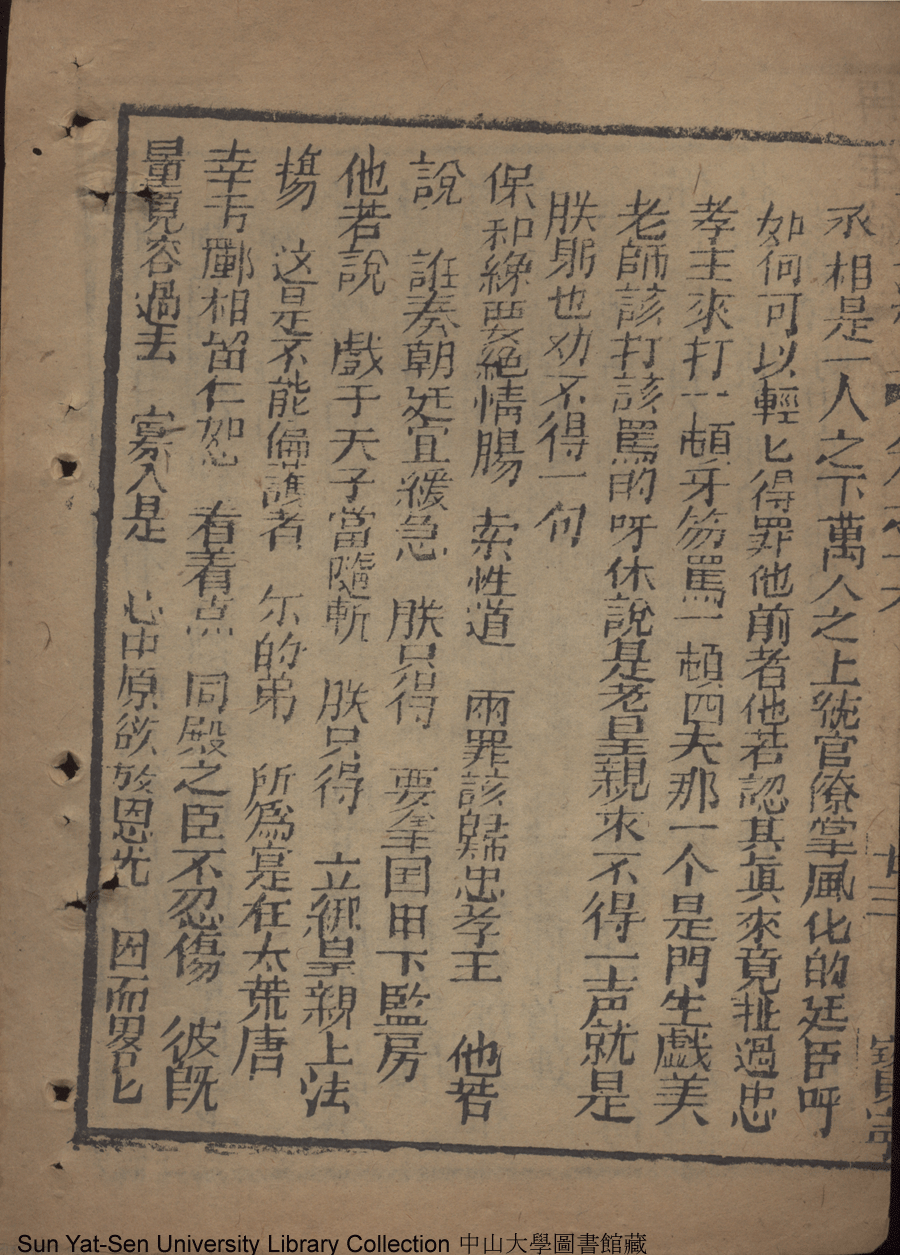 丞相是一人之下萬人之上統官僚掌風化的廷臣呼
如何可以輕匕得罪他前者他若認其真來竟扯過忠
孝王來打一頓牙笏罵一頓四夫那一个是門生戯美
老師該打該罵的呀休說是老皇親來不得一声就是
朕躬也劝不得一句
保和縁要絕情腸 索性道 兩罪該歸忠孝王 他若
說 誰奏朝廷宜緩急 朕只得 要全国田下監房
他若說 戲于天子當隨斬 朕只得 立綁皇親上法
揚 这是不能偏護者 尔的弟 所為寔在太荒唐
幸亐酈相留仁恕 看着点 同殿之臣不忍傷 彼旣
量見容過去 寡人是 心中原欲放恩光 因而畧匕
廿三
Sun Yat-Sen University Library Collection 中山大學圖書館藏